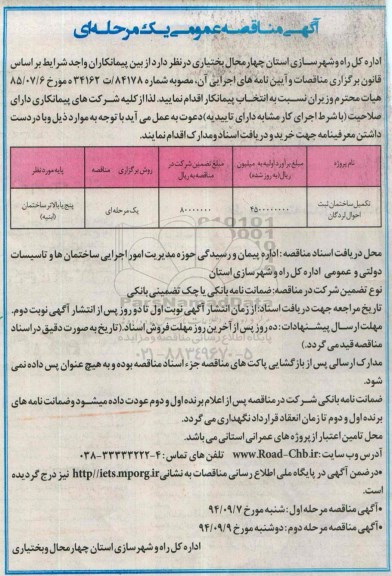 آگهی مناقصه عمومی یک مرحله‌ای
اداره کل راه و شهرسازی استان چهارمحال بختیاری در نظر دارد از بین پیمانکاران واجد شرایط بر اساس
قانون برگزاری مناقصات و آیین نامه های اجرایی آن، مصوبه شماره ۸۴۱۷۸/ت ۳۴۱۶۲ ه مورخ ۸۵/۰۷/۶
هیات محترم وزیران نسبت به انتخاب پیمانکار اقدام نمایند. لذا از کلیه شرکت های پیمانکاری دارای
صلاحیت (با شرط اجرای کار مشابه دارای تاییدیه) دعوت به عمل می آید با توجه به موارد ذیل و با در دست
داشتن معرفینامه جهت خرید و دریافت اسناد و مدارک اقدام نمایند.
نام پروژه
مبلغ برآورد اولیه به میلیون ریال (به روز شده)
مبلغ تضمین شرکت در مناقصه به ریال
روش برگزاری مناقصه
پایه مورد نظر
تکمیل ساختمان ثبت احوال لردگان
۴۵۰۰۰۰۰۰۰۰
۸۰۰۰۰۰۰۰
یک مرحله ای
پنج یا بالاتر ساختمان (ابنیه)
محل دریافت اسناد مناقصه: اداره پیمان و رسیدگی حوزه مدیریت امور اجرایی ساختمان ها و تاسیسات
دولتی و عمومی اداره کل راه و شهرسازی استان
نوع تضمین شرکت در مناقصه: ضمانت نامه بانکی یا چک تضمینی بانکی
تاریخ مراجعه جهت دریافت اسناد: از زمان انتشار آگهی نوبت اول تا دو روز پس از انتشار آگهی نوبت دوم.
مهلت ارسال پیشنهادات: ده روز پس از آخرین روز مهلت فروش اسناد. (تاریخ به صورت دقیق در اسناد
مناقصه قید می گردد.)
مدارک ارسالی پس از بازگشایی پاکت های مناقصه جزء اسناد مناقصه بوده و به هیچ عنوان پس داده نمی
شود.
ضمانت نامه بانکی شرکت در مناقصه پس از اعلام برنده اول و دوم عودت داده میشود و ضمانت نامه های
برنده اول و دوم تا زمان انعقاد قرارداد نگهداری می گردد.
محل تامین اعتبار از پروژه های عمرانی استانی می باشد.
آدرس وب سایت: www.Road-Chb.ir تلفن های تماس: ۴-۳۳۳۳۳۲۲۲-۰۳۸
•در ضمن آگهی در پایگاه ملی اطلاع رسانی مناقصات به نشانی http//iets.mporg.ir نیز درج گردیده
است.
•آگهی مناقصه مرحله اول: شنبه مورخ ۹۴/۰۹/۷
•آگهی مناقصه مرحله دوم: دوشنبه مورخ ۹۴/۰۹/۹
اداره کل راه و شهرسازی استان چهارمحال و بختیاری